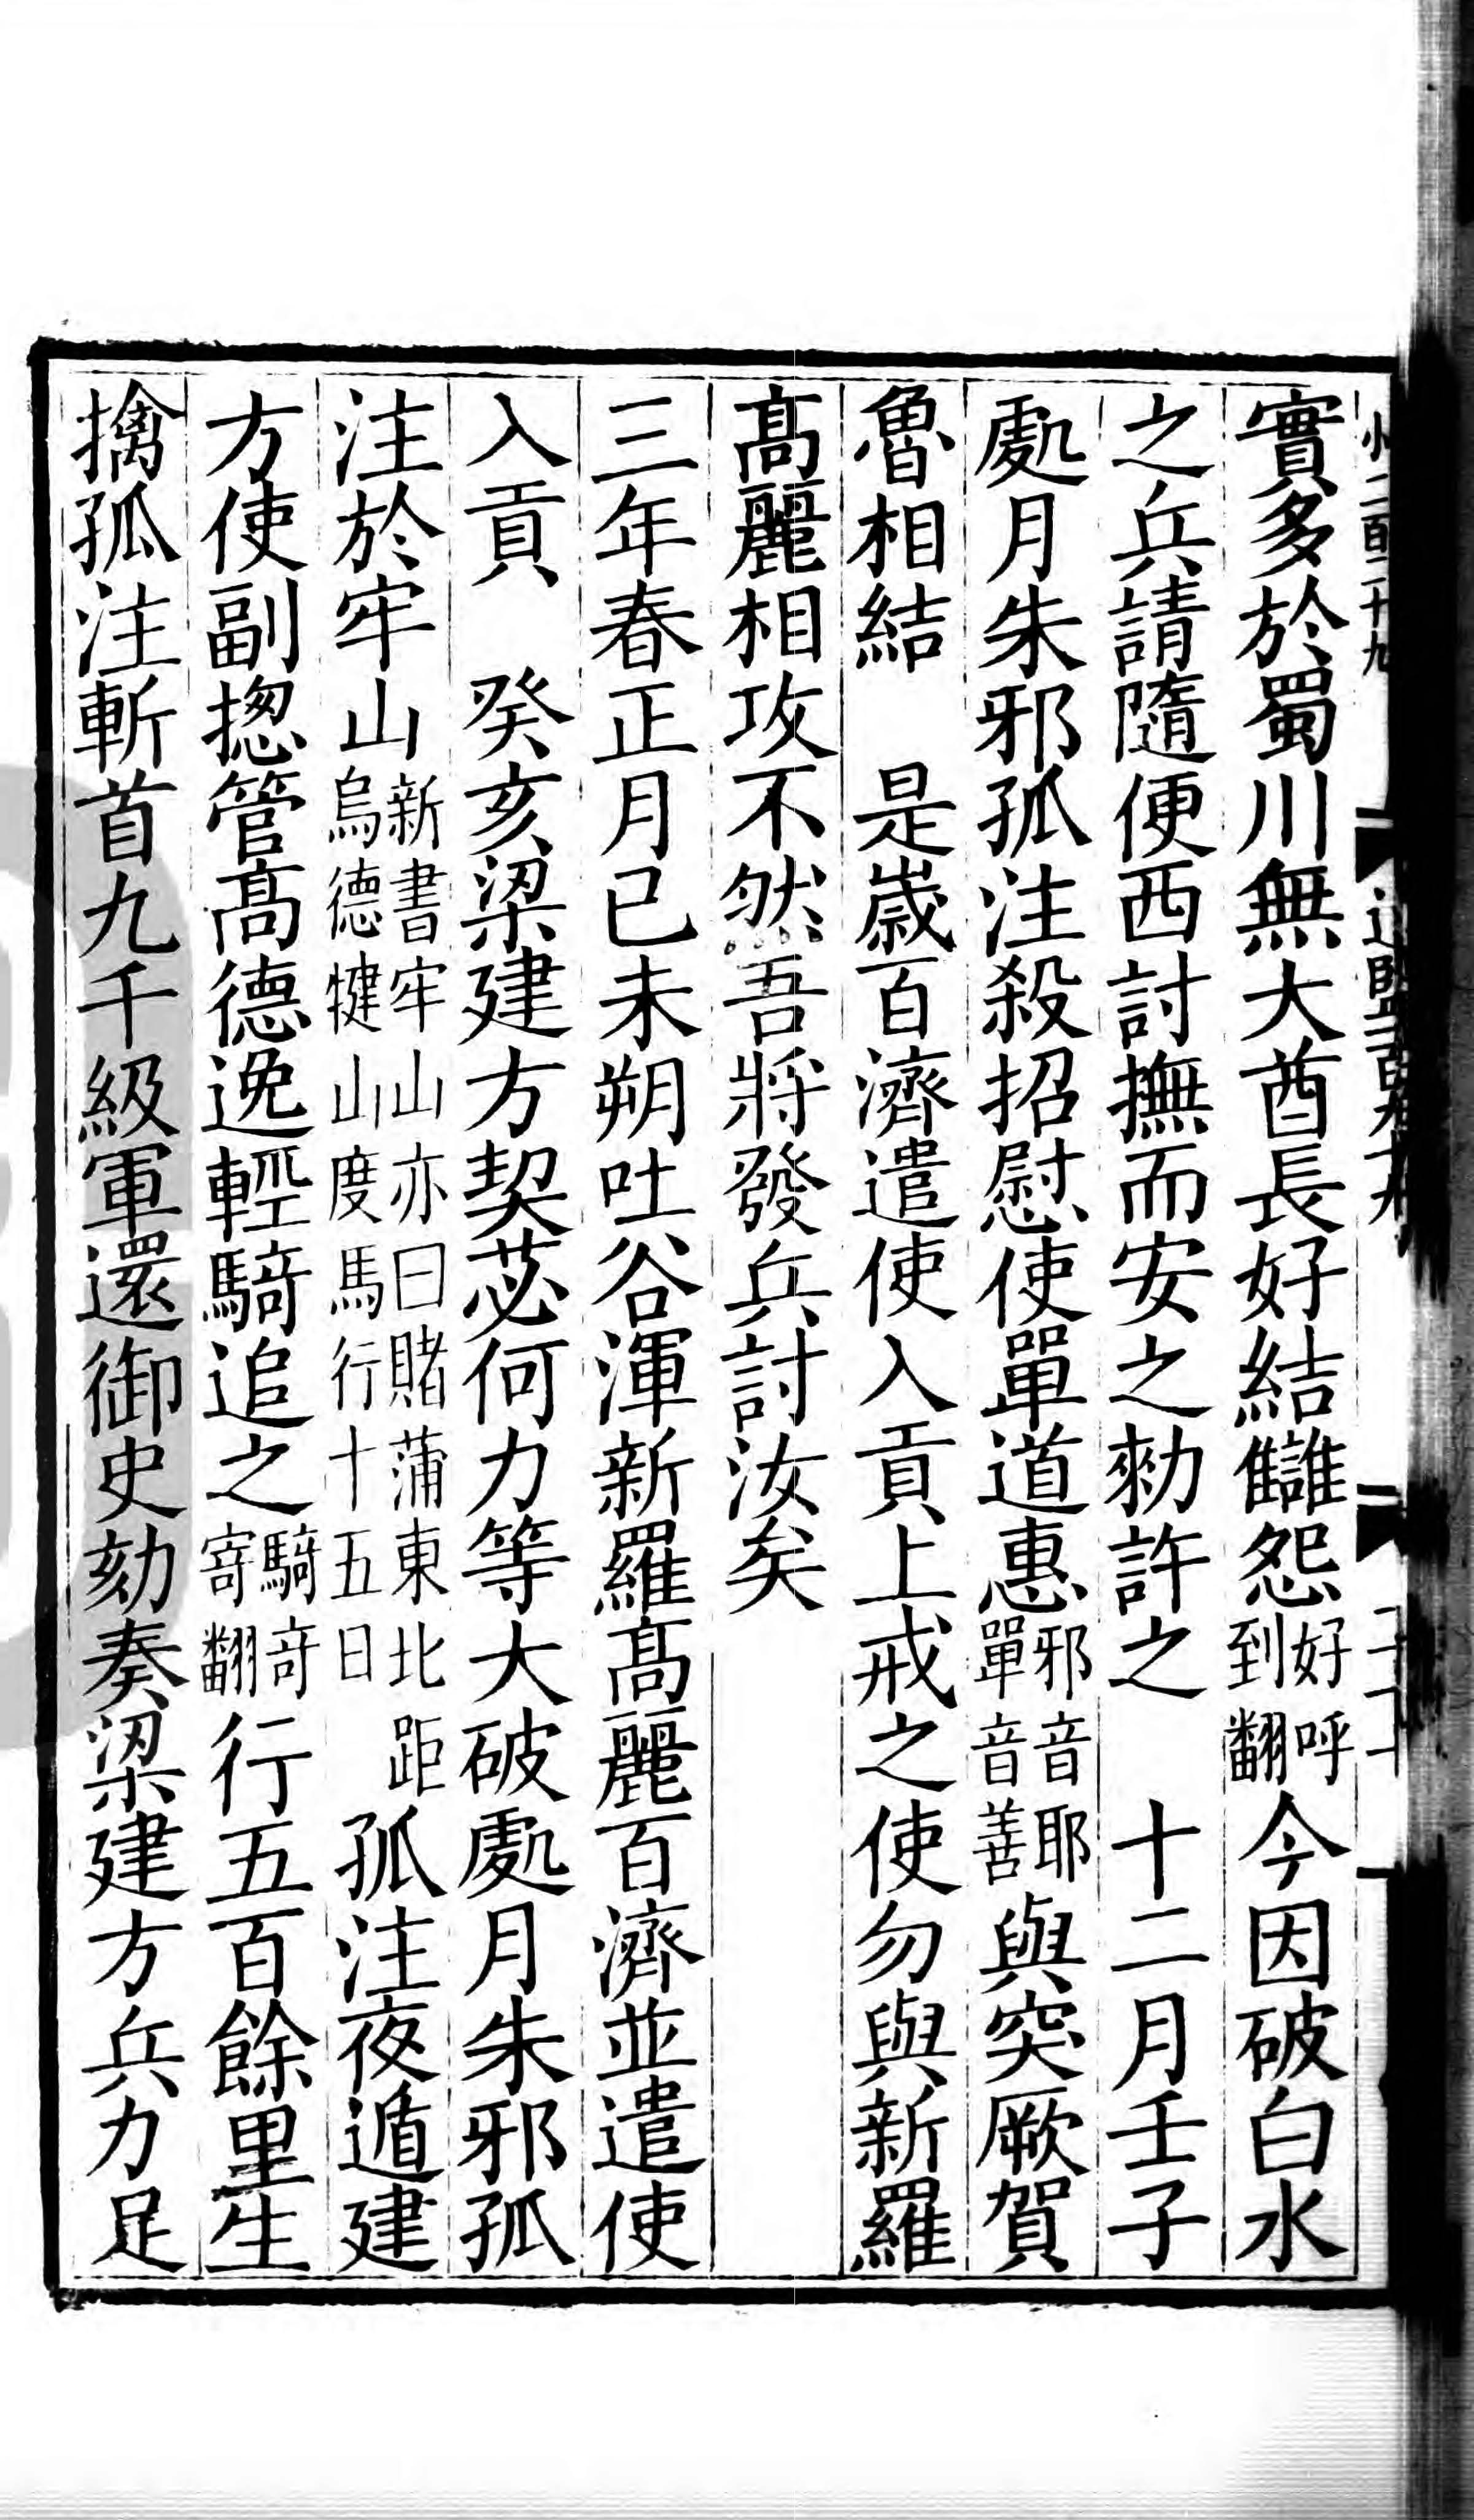 實多於蜀川無大酋長好結讎怨好呼到翻今因破白水
之兵請隨便西討撫而安之勑許之　十二月壬子
處月朱邪孤注殺招慰使單道惠邪音耶單音善與突厥賀
魯相結　是歲百濟遣使入貢上戒之使勿與新羅
髙麗相攻不然吾將發兵討汝矣
三年春正月已未朔吐谷渾新羅髙麗百濟並遣使
入貢　癸亥梁建方契苾何力等大破處月朱邪孤
注於牢山新書牢山亦曰賭蒲東北距烏德犍山度馬行十五日孤注夜遁建
方使副揔管髙德逸輕騎追之騎奇寄翻行五百餘里生
擒孤注斬首九千級軍還御史劾奏梁建方兵力足